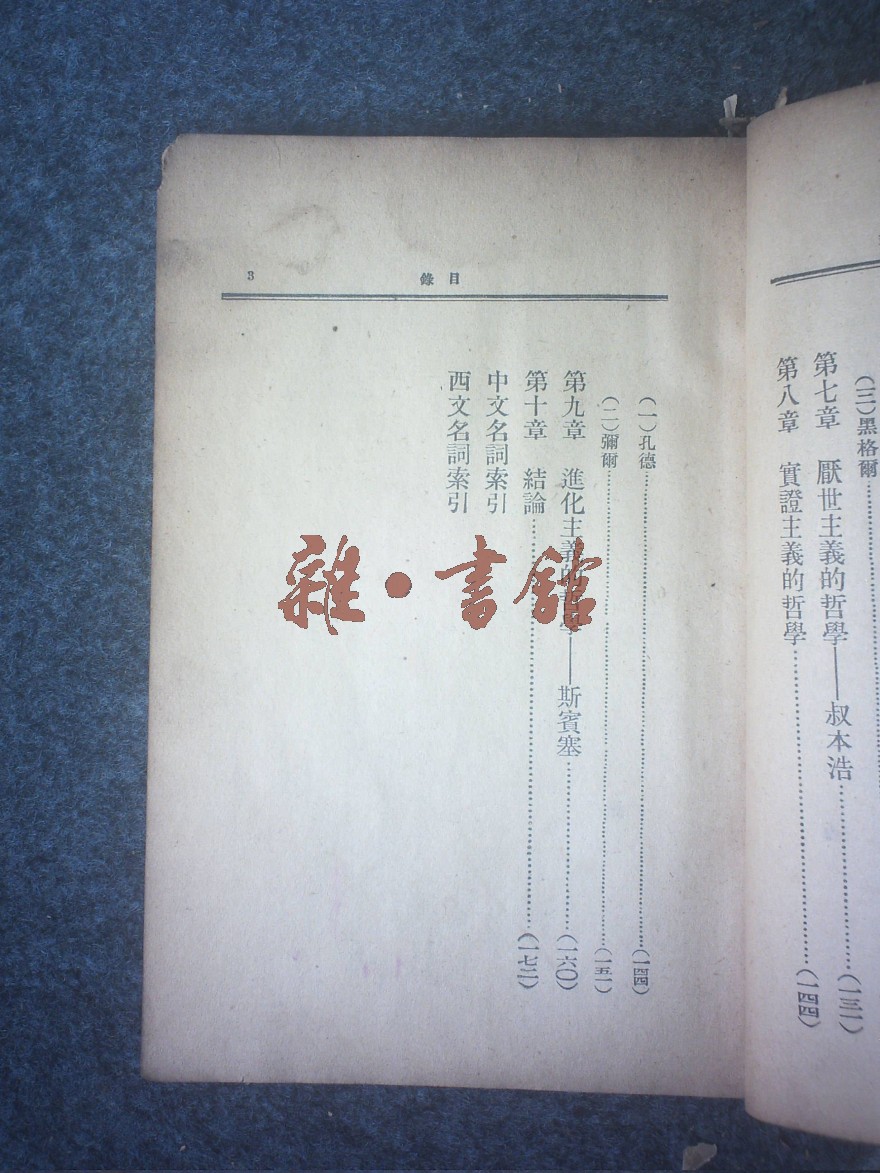 (三)黑格爾……
第七章 厭世主義的哲學——叔本浩……(一三一)
第八章 實證主義的哲學……(一四四)
目錄
3
(一)孔德……(一四四)
(二)彌爾……(一五一)
第九章 進化主義的哲學——斯賓塞……(一六〇)
第十章 結論……(一七二)
中文名詞索引
西文名詞索引
雜·書館